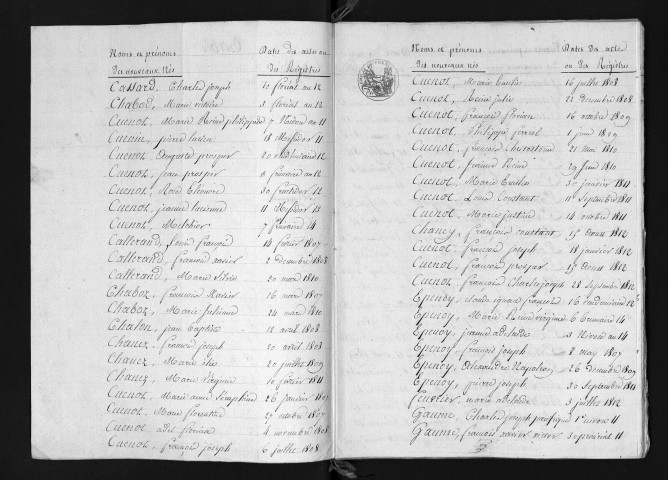 Noms et prénoms
des nouveaux nés
Dates des actes ou
des Registres
Cassard, Charles joseph 10 floréal an 12
Chabod, Marie victoire 3 floréal an 12
Cuenot, Marie Reine philippine 7 an 11
Cuenin, pierre lucien 18 Messidor 11
Cuenot, Auguste prosper 20 vendémiaire 12
Cuenot, jean prosper 8 frimaire an 12
Cuenot, Rose Eléonore 30 fructidor 12
Cuenot, jeanne 11 Messidor 13
Cuenot, Melchior 7 frimaire 14
Catterand, Louis françois 14 février 1807
Catterand, françois xavier 2 décembre 1808
Catterand, Marie Silvie 20 mars 1810
Chaboz, françois Xavier 16 mars 1809
Chaboz, Marie Julienne 24 mars 1810
Chalon, jean baptiste 12 avril 1808
Chanez, françois joseph 20 avril 1808
Chanez, Marie 20 juillet 1809
Chanez, Marie Virginie 10 février 1811
Cuenot, Marie anne Séraphine 26 janvier 1807
Cuenot, Marie florentine 27 octobre 1807
Cuenot 4 novembre 1808
Cuenot, françois joseph 6 juillet 1808
Noms et prénoms
des nouveaux nés
Dates des actes
ou des Registres
Cuenot, Marie 16 juillet 1808
Cuenot, Marie Julie 22 décembre 1808
Cuenot, françois florian 16 octobre 1809
Cuenot, Philippe 1 juin 1809
Cuenot, françois 21 mai 1810
Cuenot, françois 29 juin 1810
Cuenot, Marie Emilie 30 janvier 1811
Cuenot, Louis Constant 11 Septembre 1811
Cuenot, Marie justine 14 octobre 1811
Chanez, françois constant 15 Août 1812
Cuenot, françois joseph 18 janvier 1812
Cuenot, françois prosper 15 Août 1812
Cuenot, françois Charles joseph 28 Septembre 1812
Epenoy, claude ignace françois 16 vendémiaire 12
Epenoy, Marie Reine virginie 6 brumaire 14
Epenoy, jeanne adélaïde 3 Nivose an 14
Epenoy, françois joseph 8 may 1807
Epenoy, Alexandre Napoléon 26 décembre 1807
Epenoy, pierre joseph 30 Septembre 1811
feuvrier, marie adélaïde 3 juillet 1812
Gaume, Charles joseph 1er nivose 11
Gaume, françois xavier victor 30 prairial 11